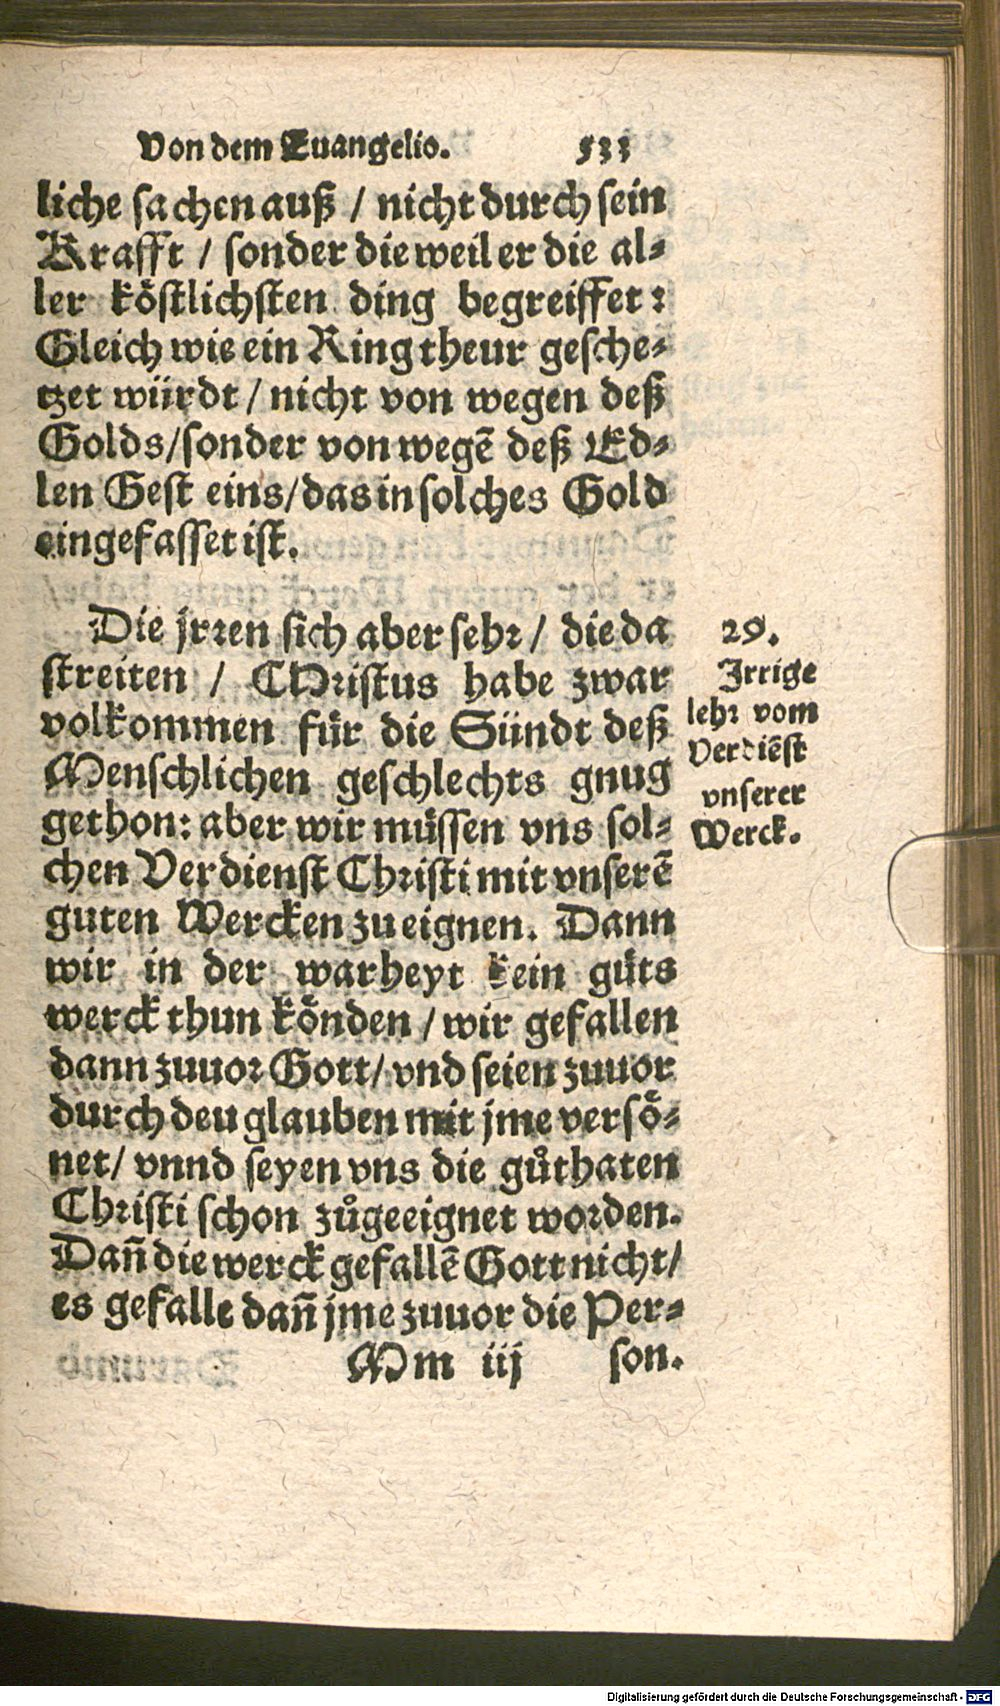 Von dem Euangelio. 533
liche sachen auß / nicht durch sein
Krafft / sonder die weil er die al-
ler köstlichsten ding begreiffet:
Gleich wie ein Ring theur gesche-
tzet würdt / nicht von wegen deß
Golds / sonder von wegẽ deß Ed-
len Gest eins / das in solches Gold
eingefasset ist.
Die jrren sich aber sehr / die da
streiten / CHristus habe zwar
volkommen für die Sündt deß
Menschlichen geschlechts gnug
gethon: aber wir müssen vns sol-
chen Verdienst Christi mit vnserẽ
guten Wercken zu eignen. Dann
wir in der warheyt kein gůts
werck thun kŏnden / wir gefallen
dann zuuor Gott / vnd seien zuuor
durch deu glauben mit jme versŏ-
net / vnnd seyen vns die gůthaten
Christi schon zůgeeignet worden.
Dañ die werck gefallẽ Gott nicht /
es gefalle dañ jme zuuor die Per-
Mm iij son.
29.
Irrige
lehr vom
Verdiẽst
vnserer
Werck.
Digitalisierung gefördert durch die Deutsche Forschungsgemeinschaft - DFG